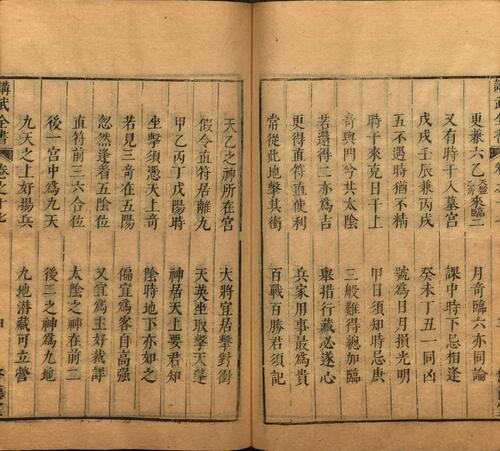 更兼六乙來臨二　月奇臨六亦同論
又有時干入墓宮　課中時下忌相逢
戊戌壬辰兼丙戌　癸未丁丑一同凶
五不遇時猶不精　號為日月損光明
時干來克日干上　甲日須知時忌庚
奇與門兮共太陰　三般難得總加臨
若還得二亦為吉　舉措行藏必遂心
更得直符直使利　兵家用事最為貴
常從此地擊其衝　百戰百勝君須記
天乙之神所在宮　大將宜居擊對衝
假令直符居離九　天英坐取擊天蓬
甲乙丙丁戊陽時　神居天上要君知
坐擊須憑天上奇　陰時地下亦如之
若見三奇在五陽　偏宜為客自高强
忽然逢着五陰位　又宜為主好裁詳
直符前三六合位　太陰之神在前二
後一宮中為九天　後二之神為九地
九天之上好揚兵　九地潛藏可立營
講武全書　卷之十七